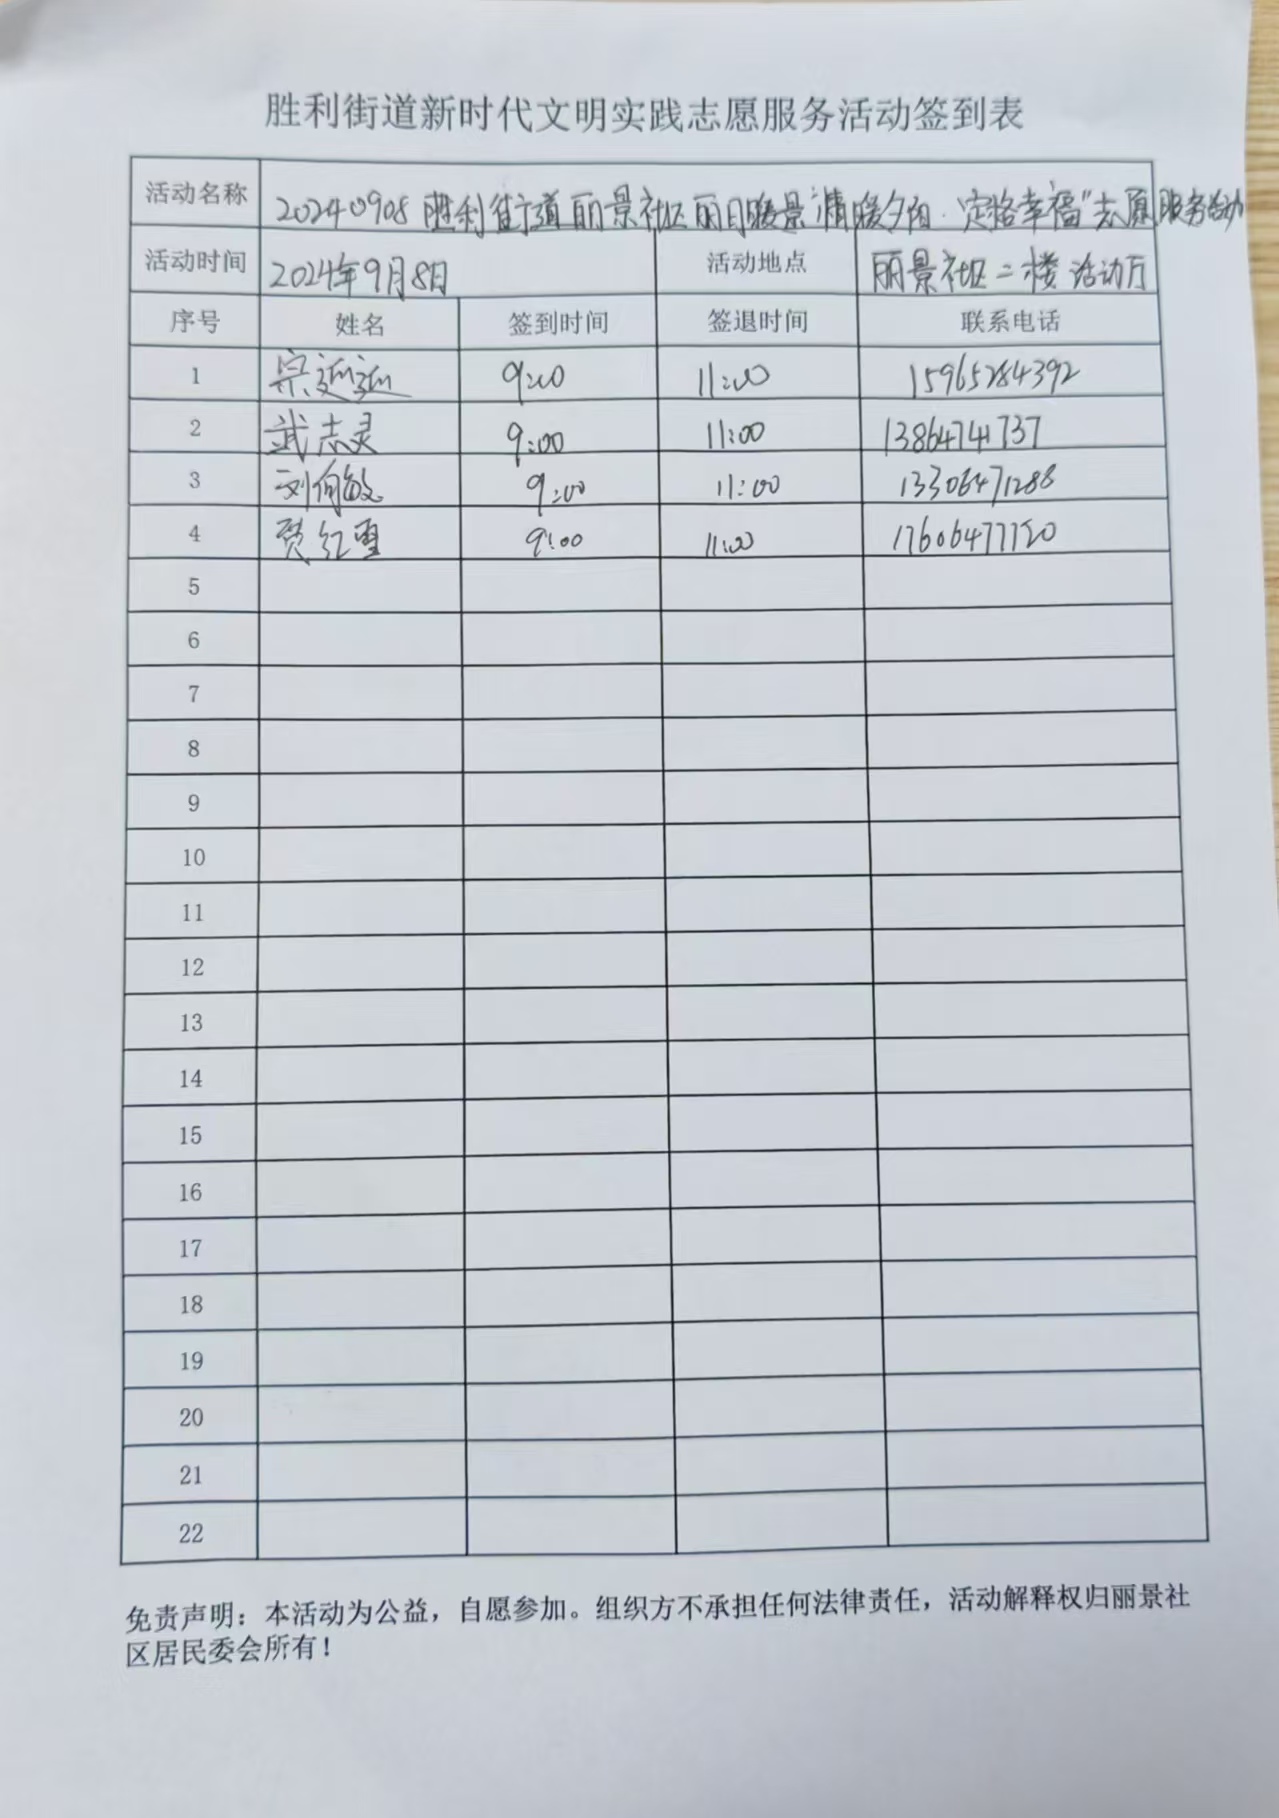 胜利街道新时代文明实践志愿服务活动签到表
活动名称 20240908胜利街道丽景社区丽日暖景情暖夕阳·"定格幸福"志愿服务活动
活动时间 2024年9月8日 活动地点 丽景社区二楼活动厅
序号 姓名 签到时间 签退时间 联系电话
1 9:00 11:00 15965284392
2 武志灵 9:00 11:00 13864741737
3 9:00 11:00 13306471288
4 贾红雪 9:00 11:00
5
6
7
8
9
10
11
12
13
14
15
16
17
18
19
20
21
22
免责声明：本活动为公益，自愿参加。组织方不承担任何法律责任，活动解释权归丽景社
区居民委会所有！